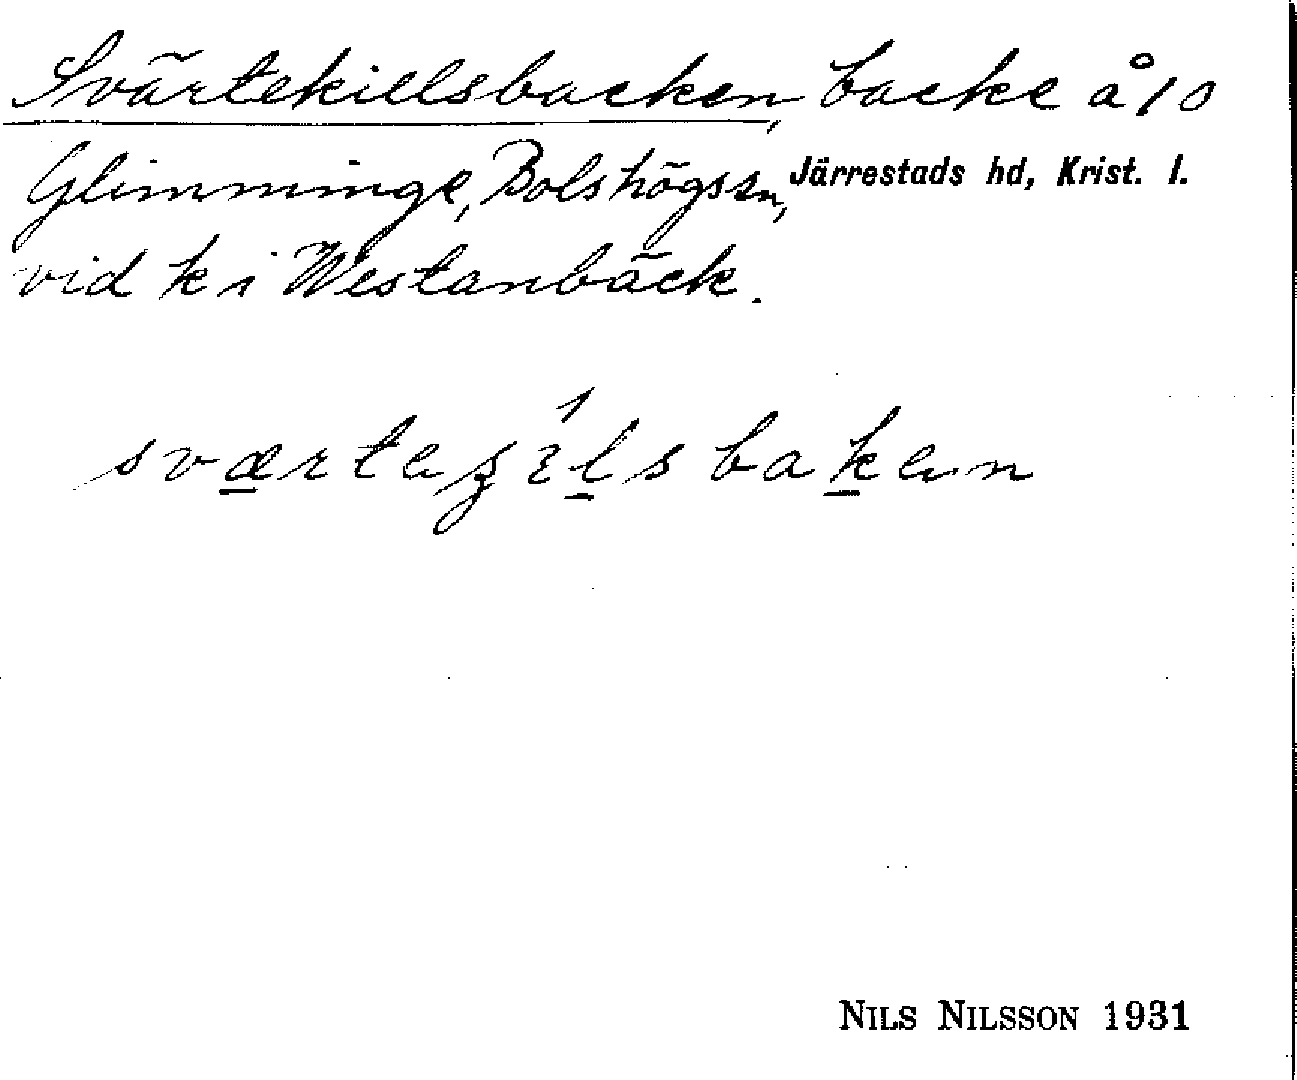 Svärtekillsbacken, backe å 10
Glimminge, Bolshögs sn, Järrestads hd, Krist. l.
vid k i Westanbäck.
sværtaʒ́ilsbakan
NILS NILSSON 1931